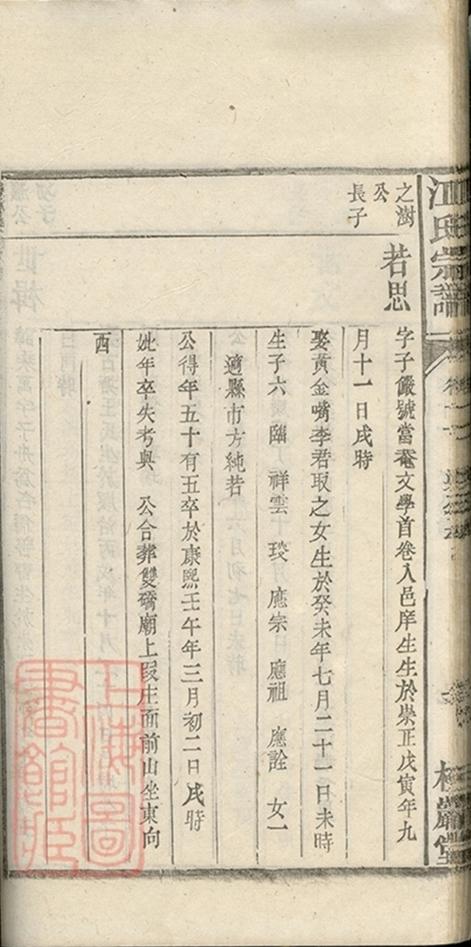 江氏宗譜
之澍
公
長子
若思
字子儼號當菴文學首卷入邑庠生生於崇正戊寅年九
月十一日戌時
娶黃金嘴李君取之女生於癸未年七月二十一日未時
生子六 臨 祥雲 琰 應宗 應祖 應詮 女一
適縣市方純若
公得年五十有五卒於康熙壬午年三月初二日戌時
妣年卒失考與 公合葬雙磚廟上叚庄面前山坐東向
酉
上海圖
書館藏